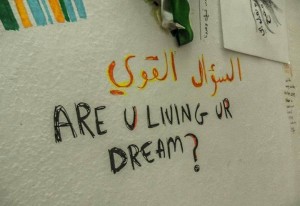 السؤال القوي
ARE U LIVING UR
DREAM?